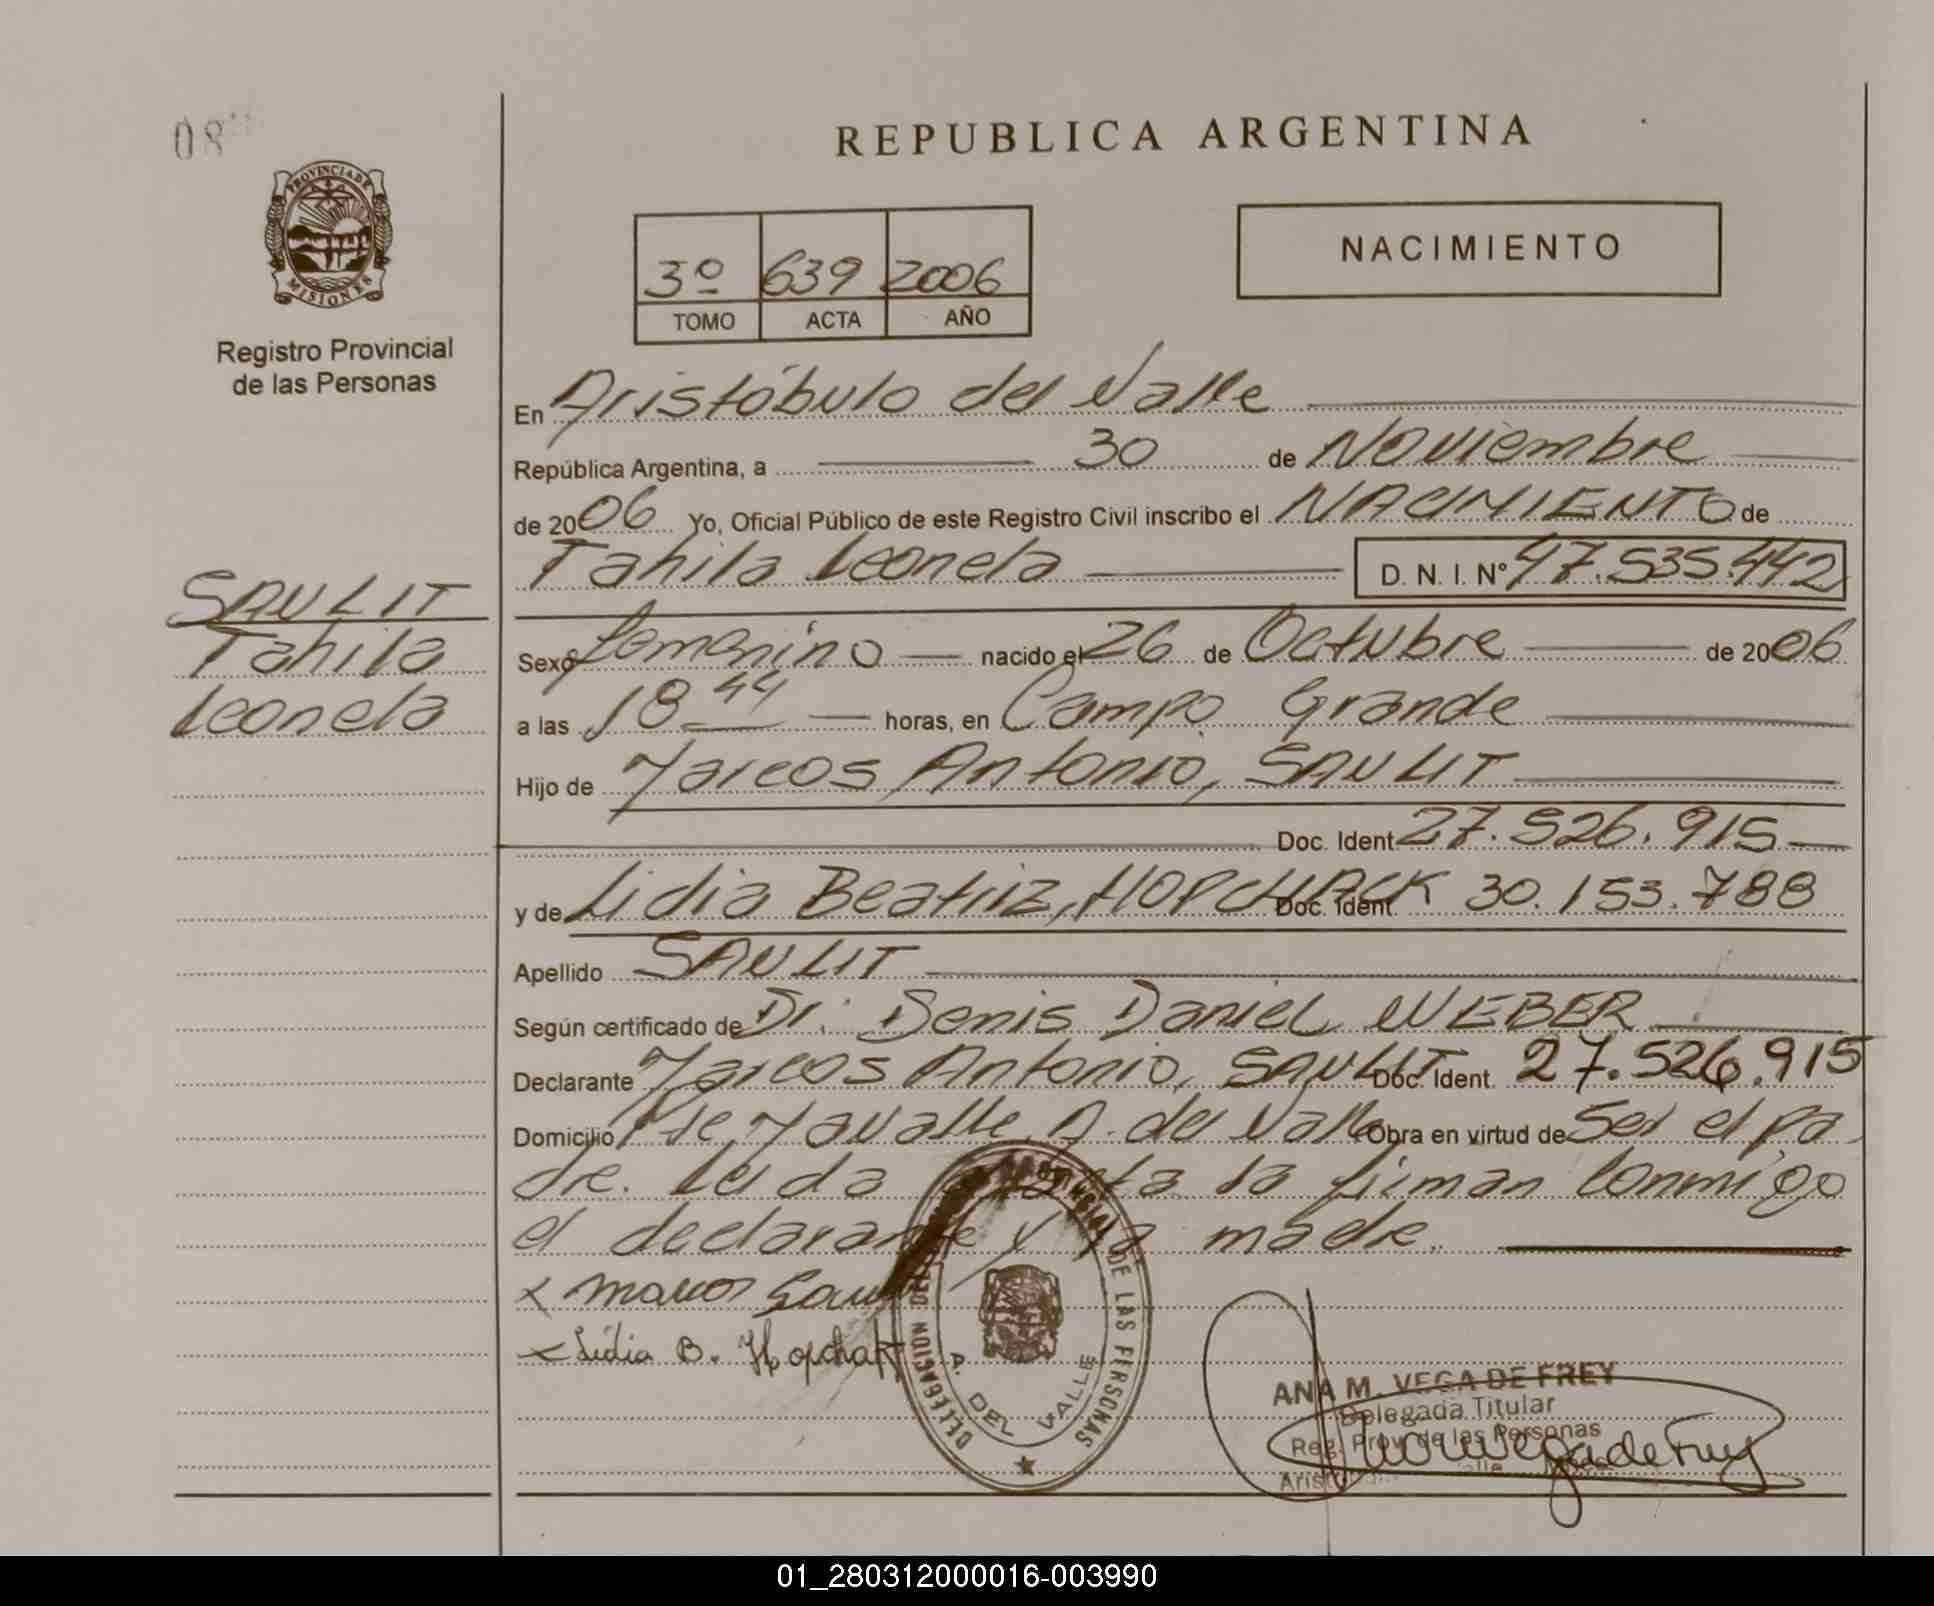 08
PROVINCIA DE
MISIONES
Registro Provincial
de las Personas
SAULIT
Tahila
Leonela
REPUBLICA ARGENTINA
3º 639 2006
TOMO ACTA AÑO
NACIMIENTO
En Aristóbulo del Valle
República Argentina, a 30 de Noviembre
de 2006 Yo, Oficial Público de este Registro Civil inscribo el NACIMIENTO de
Tahila Leonela D. N. I. Nº 47.535.442
Sexo femenino nacido el 26 de Octubre de 2006
a las 18 44 horas, en Campo Grande
Hijo de Marcos Antonio, SAULIT
Doc. Ident 27.526.915
y de Lidia Beatriz, HOPCHACK Doc. Ident. 30.153.788
Apellido SAULIT
Según certificado de Dr. Denis Daniel WEBER
Declarante Marcos Antonio, SAULIT Doc. Ident. 27.526.915
Domicilio A. del Valle Obra en virtud de Ser el pa
dre. Leída la firman conmigo
el declarante y la madre.
x Marcos
x Lidia B. Hopchak
DELEGACION DEL DE LAS PERSONAS
A. DEL VALLE
ANA M. VEGA DE FREY
Delegada Titular
Reg. Prov. de las Personas
01_280312000016-003990